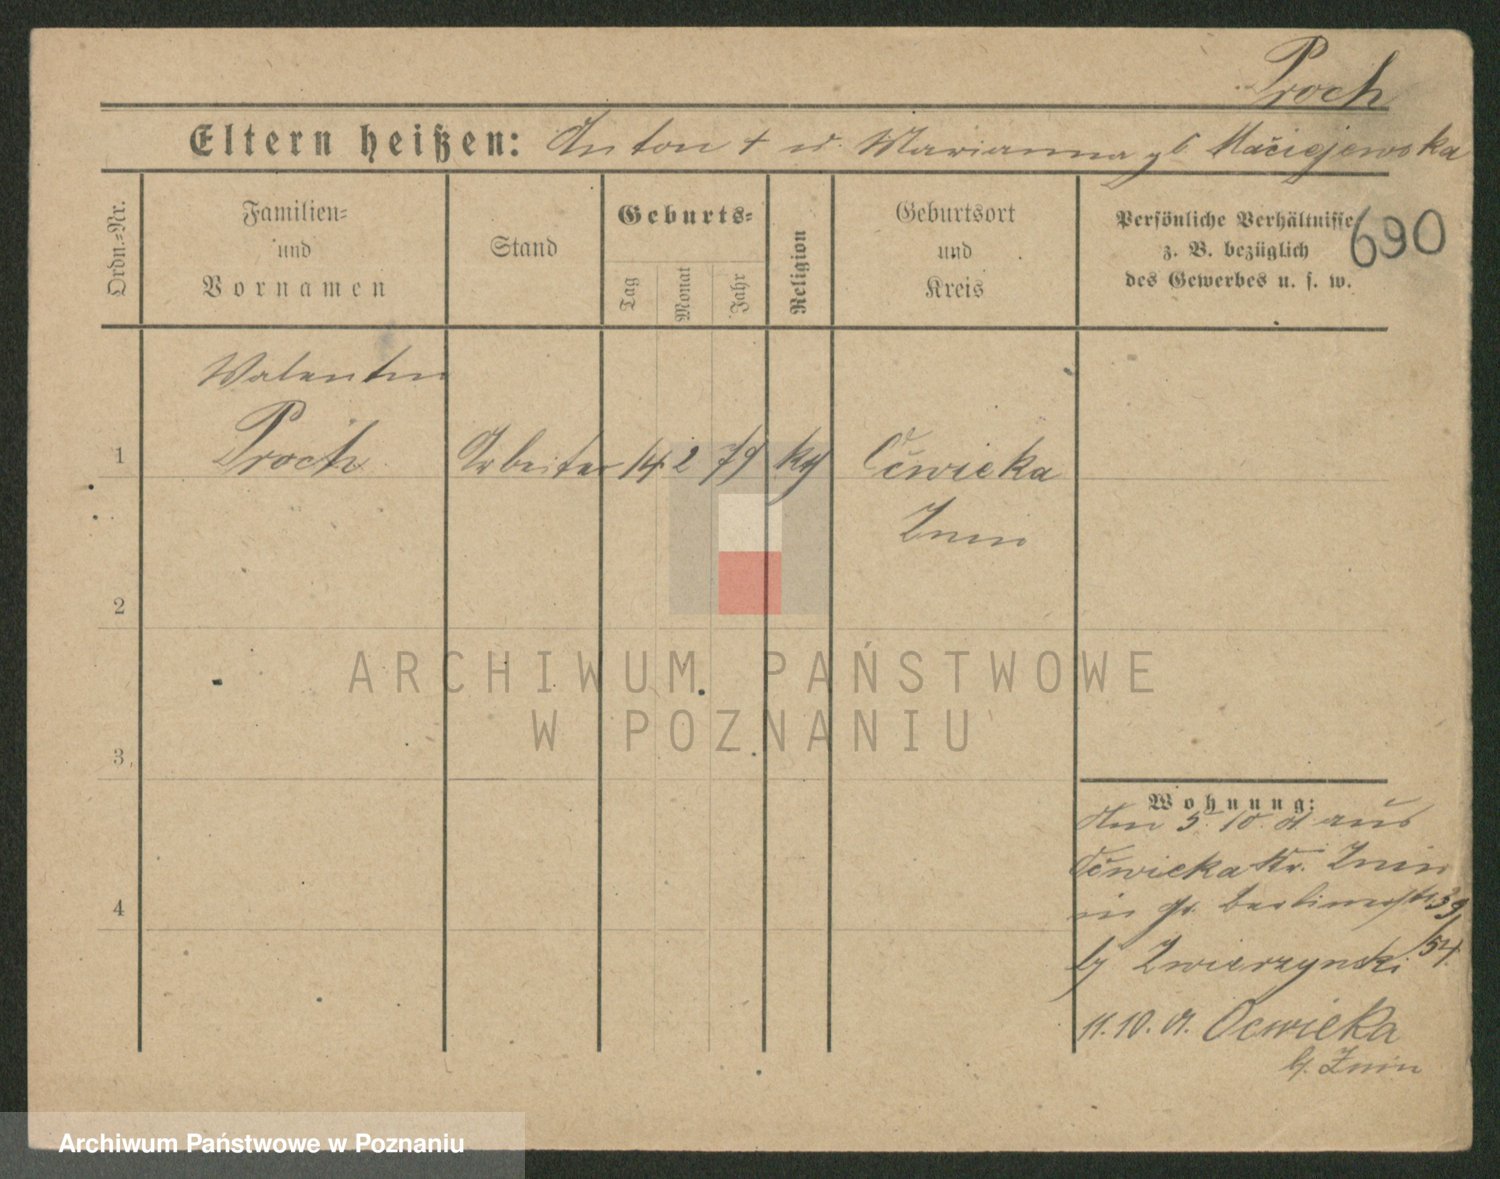 Proch
Eltern heißen: Anton + u. Marianna gb Maciejewska
Ordn.=Nr.
Familien=
und
Vornamen
Stand
Geburts=
Tag
Monat
Jahr
Religion
Geburtsort
und
Kreis
Persönliche Verhältnisse
z. B. bezüglich
des Gewerbes u. s. w.
690
Walentin
1 Proch Arbeiter 14 2 79 kth Ocwieka
Znin
2
ARCHIWUM PAŃSTWOWE
W POZNANIU
3
4
Wohnung:
Am 5. 10. 01 aus
Ocwieka Kr. Znin
in Gr. Berlinerstr 39/
by Zwierzynski 54.
11. 10. 01. Ocwieka
b. Znin
Archiwum Państwowe w Poznaniu